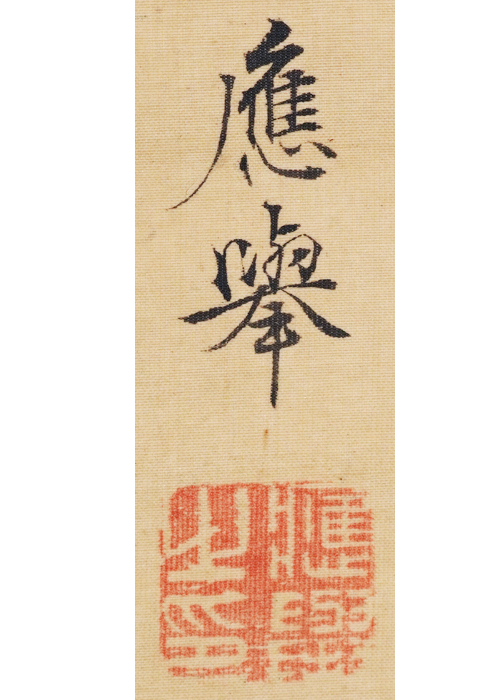 應擧
應擧之印